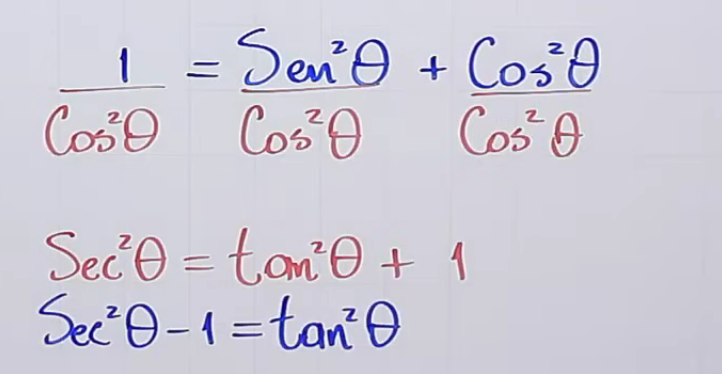 1 = Sen²θ + Cos²θ
Cos²θ Cos²θ Cos²θ
Sec²θ = tan²θ + 1
Sec²θ - 1 = tan²θ